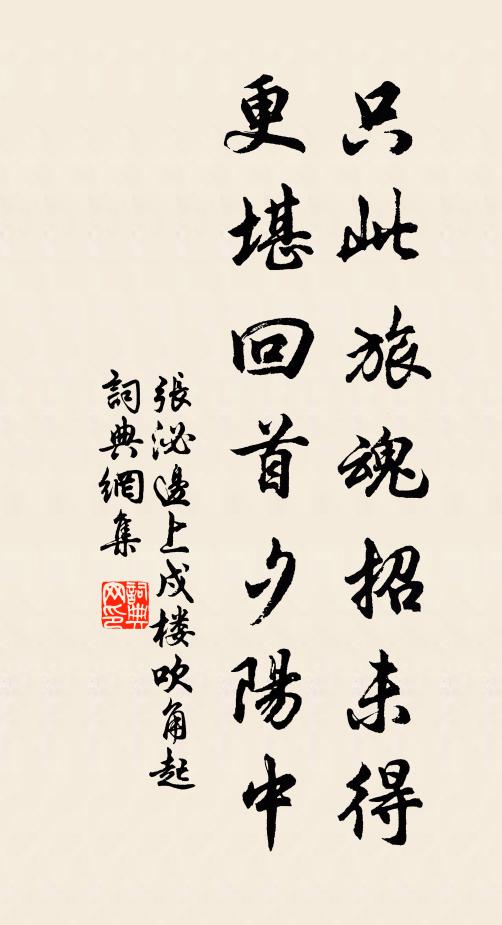 只此旅魂招未得
更堪回首夕陽中
張泌邊上戍楼吹角起
詞典網集
詞典网印